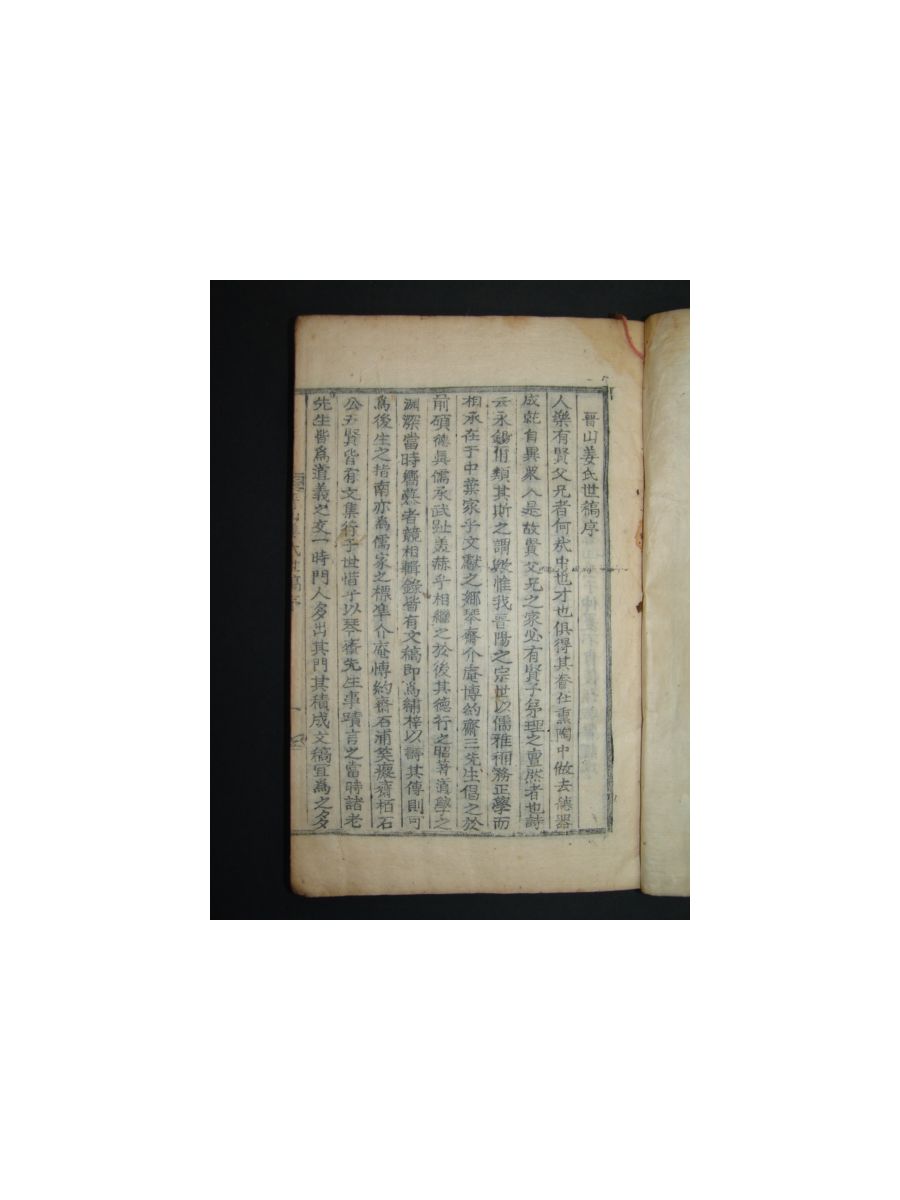 晉山姜氏世稿序
人樂有賢父兄者何哉中也才也俱得其養在熏陶中做去德器
成就自異衆人是故賢父兄之家必有賢子弟理之亶然者也詩
云永錫爾類其斯之謂歟惟我晉陽之宗世以儒雅相務正學而
相承在于中葉家乎文獻之鄉琴齋介庵博約齋三先生倡之於
前碩德眞儒承武趾美赫乎相繼之於後其德行之昭著道學之
淵深當時嚮慕者競相輯錄皆有文稿即爲繡梓以壽其傳則可
爲後生之指南亦爲儒家之標準介庵博約齋石浦笑癡齋栢石
公五賢皆有文集行于世惜乎以琴齋先生事蹟言之當時諸老
先生皆爲道義之交一時門人多出其門其積成文稿宜爲之多
山姜氏世稿序
一